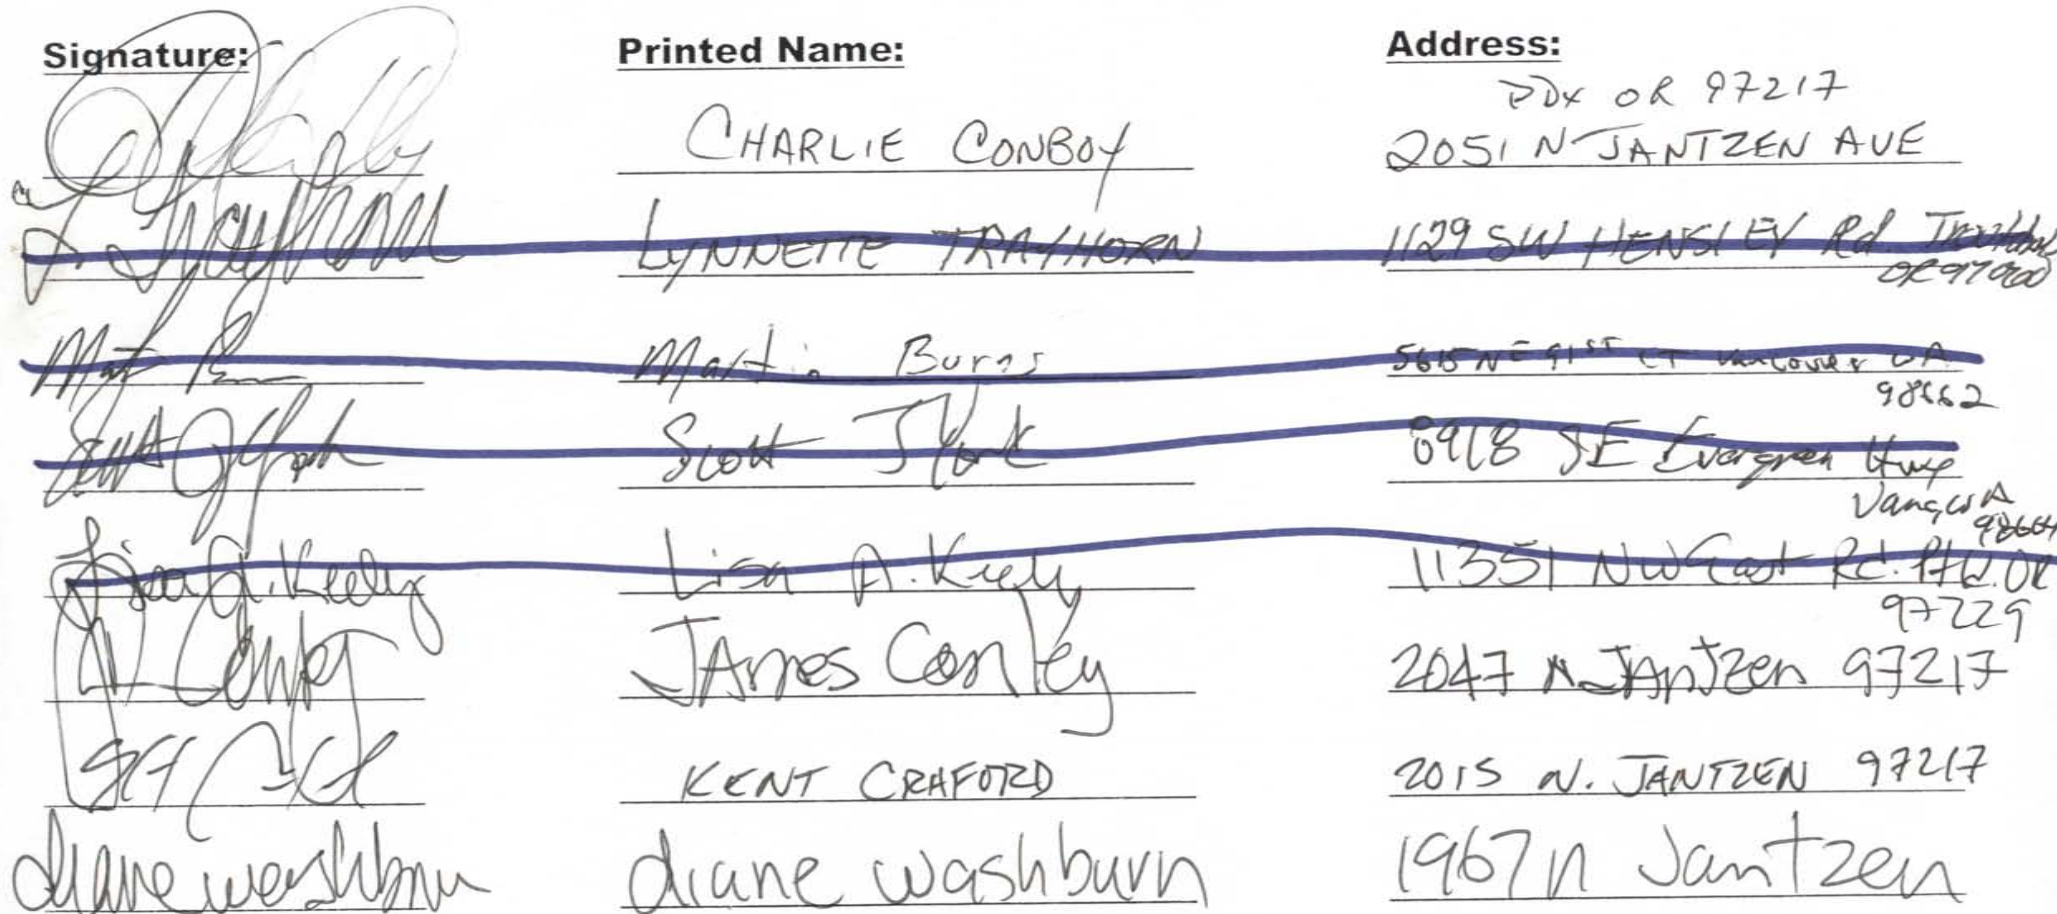 Signature: Printed Name: Address:
PDX OR 97217
CHARLIE CONBOY 2051 N JANTZEN AVE
L Trayhorn LYNNETTE TRAYHORN 1129 SW HENSLEY Rd Troutdale
OR 97060
Martin Burns 5615 NE 91ST CT Vancouver WA
98662
Scott J York Scott J York 8918 SE Evergreen Hwy
Vanc, WA
98664
Lisa A. Keely Lisa A. Keely 11351 NW East Rd. Ptld. OR
97229
J Conley JAmes Conley 2047 N JAnTzen 97217
KENT CRAFORD 2015 N. JANTZEN 97217
diane washburn diane washburn 1967 n Jantzen